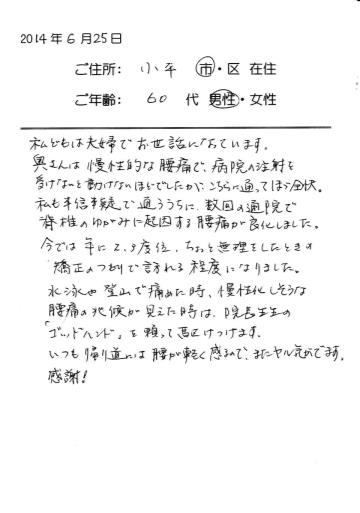 2014年6月25日
ご住所: 小平 市・区 在住
ご年齢: 60 代 男性・女性
私どもは夫婦でお世話になっています。
奥さんは慢性的な腰痛で、病院の注射を
受けないと動けないほどでしたが、こちらに通ってほぼ全快。
私も半信半疑で通ううちに、数回の通院で
脊椎のゆがみに起因する腰痛が良化しました。
今では年に2,3度位、ちょっと無理をしたときの
矯正のつもりで訪れる程度になりました。
水泳や登山で痛めた時、慢性化しそうな
腰痛の兆候が見えた時は、院長先生の
「ゴッドハンド」を頼って駆けつけます。
いつも帰り道には腰が軽く感るので、またヤル気がでます。
感謝!